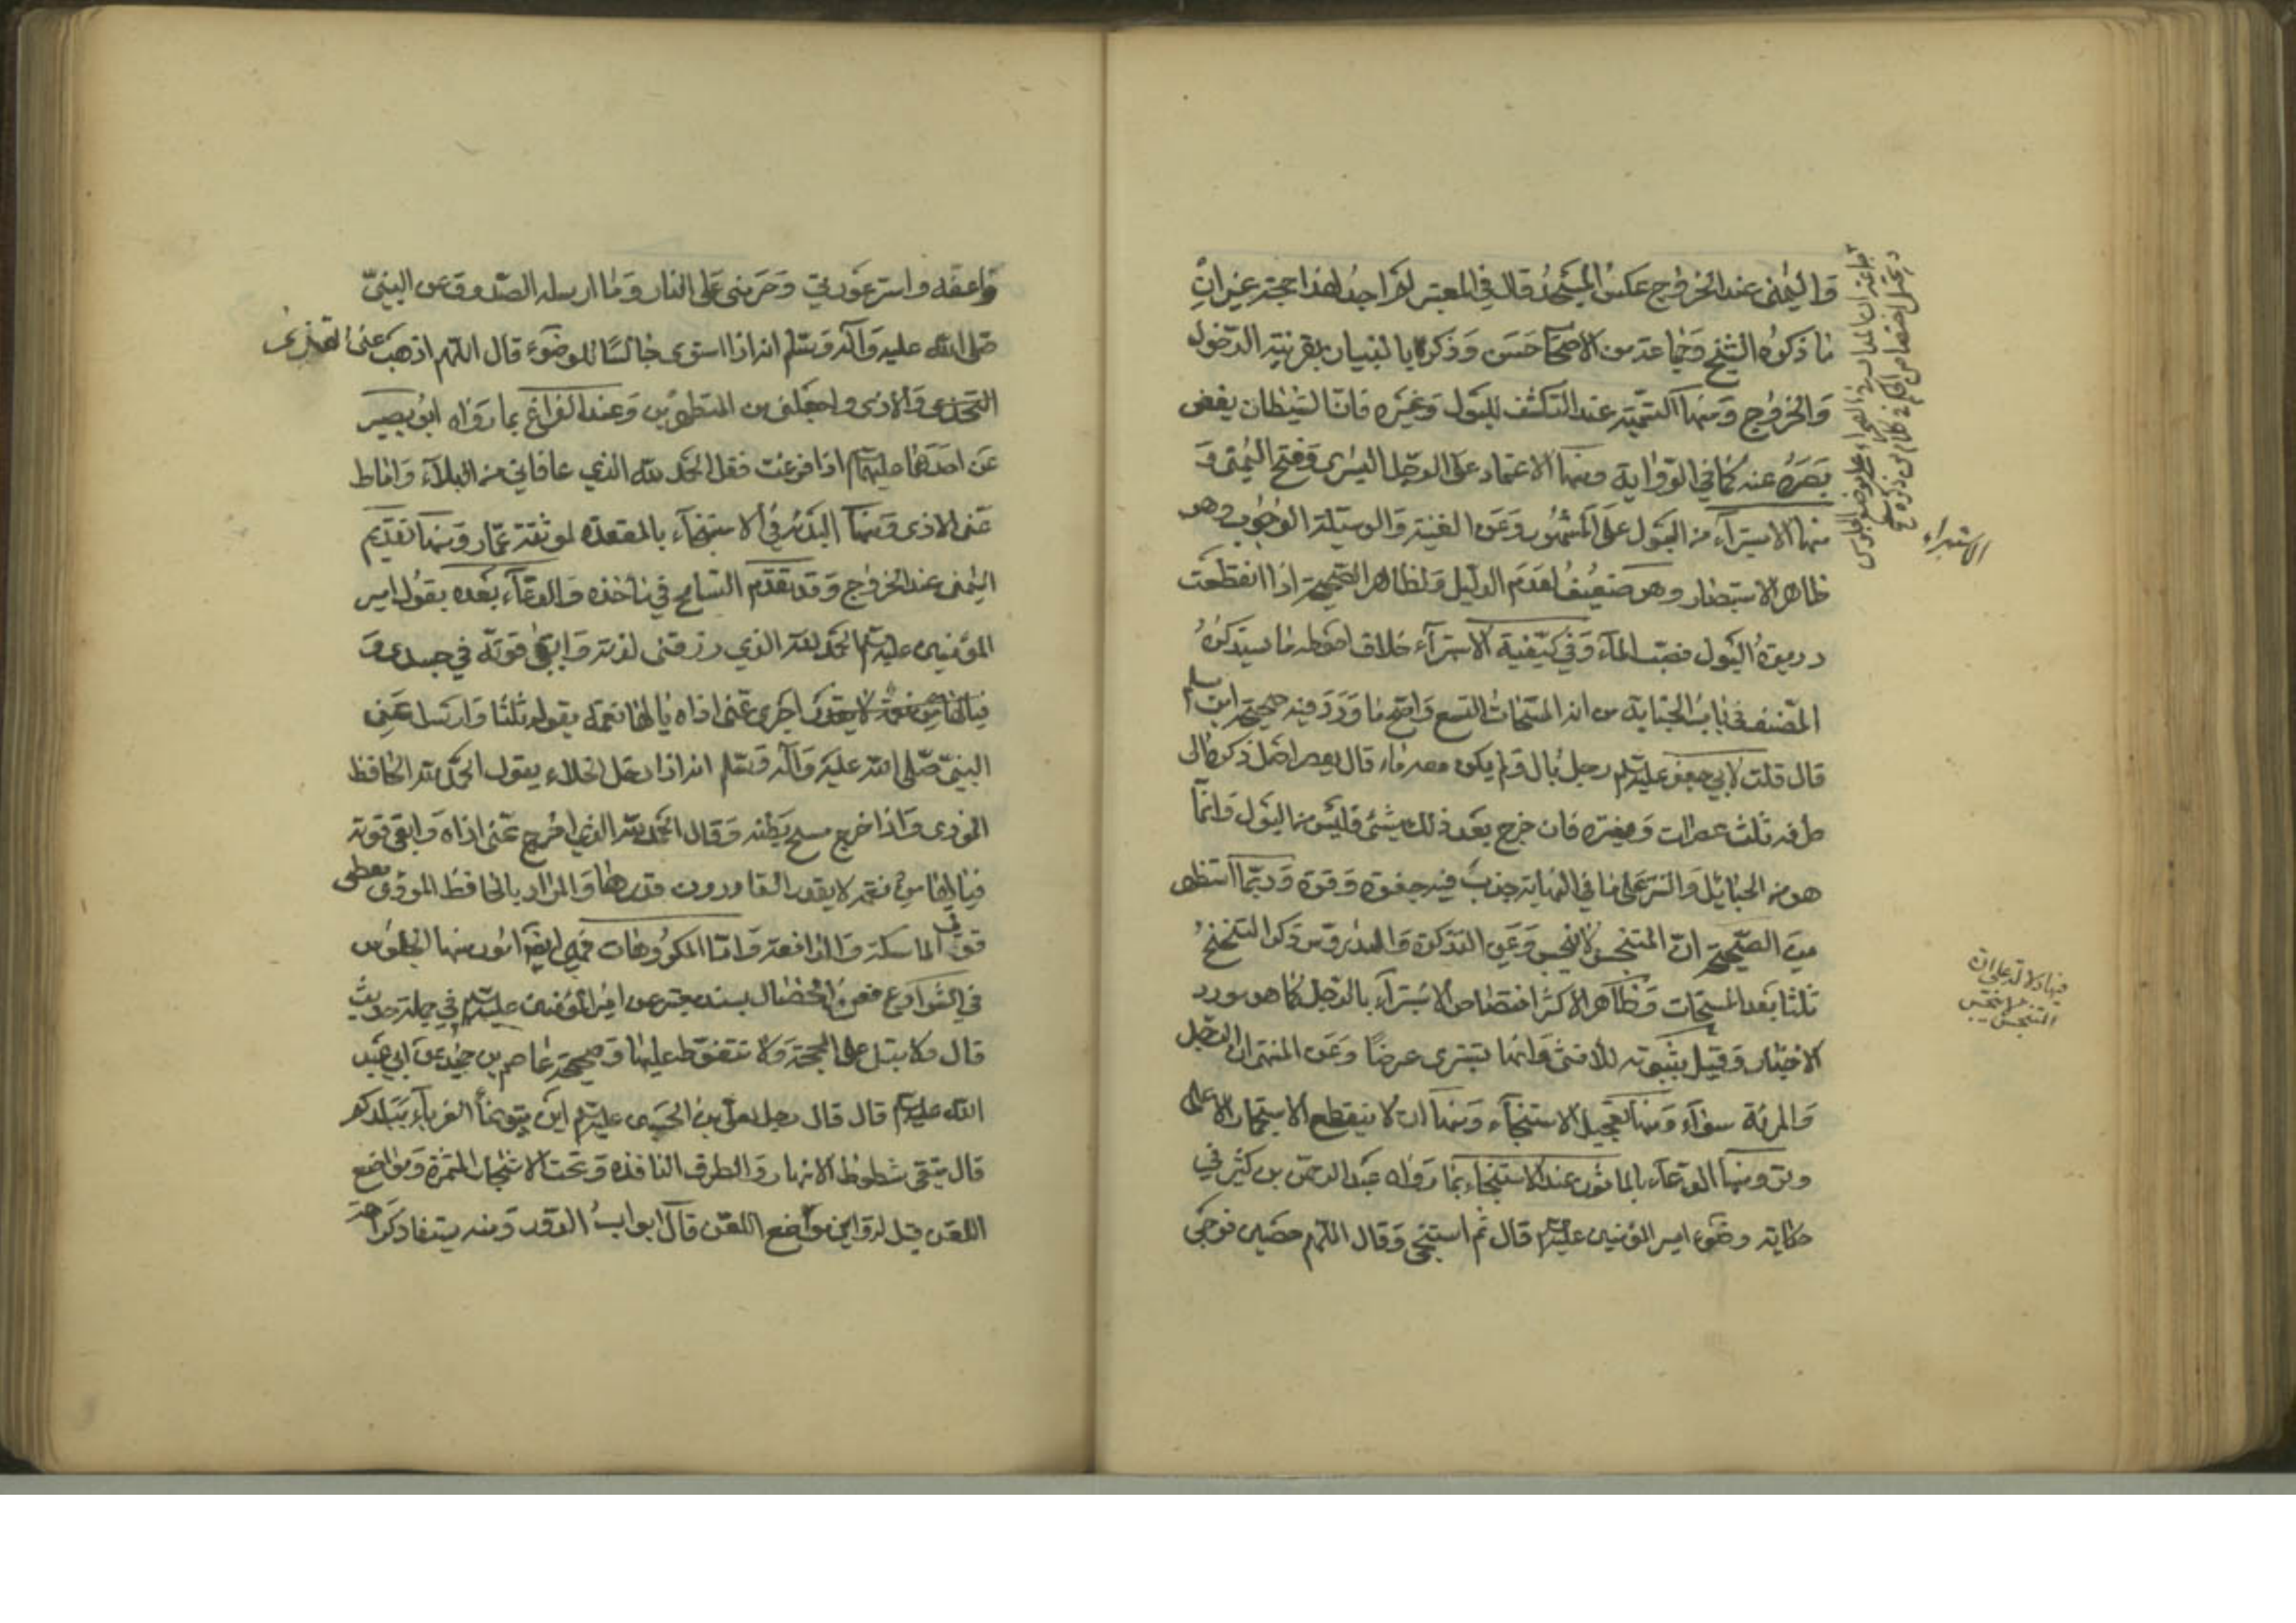 واليمنى عند الخروج عكس المسجد قال في المعتبر لم اجد لهذا حجة غير ان
ما ذكره الشيخ وجماعة من الاصحاب حسن وذكره بالتبيان بقرينة الدخول
والخروج ومنها التسمية عند التكشف للبول وغيره فان الشيطان يغض
بصره عنه كما في الرواية ومنها الاعتماد على الرجل اليسرى وفتح اليمنى و
منها الاستبراء من البول على المشهور وعن الغنية والوسيلة الوجوب وهو
ظاهر الاستبصار وهو ضعيف لعدم الدليل ولظاهر الصحيحة اذا انقطعت
دريرة البول فصب الماء وفي كيفية الاستبراء خلاف احوطه ما سيذكره
المصنف في باب الجنابة من انه المسحات التسع واصح ما ورد فيه صحيحة ابن مسلم
قال قلت لابي جعفر عليه السلم رجل بال ولم يكن معه ماء قال يعصر اصل ذكره الى
طرفه ثلث عصرات وينتره فان خرج بعد ذلك شئ فليس من البول وانما
هو من الحبائل والنتر على ما في النهاية جذب فيه جفوة وقوة وربما استظهر
من الصحيحة ان المتنجس لا ينجس وعن التذكرة والدروس ذكر التنحنح
ثلثا بعد المسحات وظاهر الاكثر اختصاص الاستبراء بالرجل كما هو مورد
الاخبار وقيل بثبوته للانثى وانما تستبرى عرضا وعن المنتهى ان الرجل
والمرءة سواء ومنها تعجيل الاستنجاء ومنها ان لا ينقطع الاستجمار الا على
وتر ومنها الدعاء بالماثور عند الاستنجاء بما رواه عبد الرحمن بن كثير في
حكاية وضوء امير المؤمنين عليه السلم قال ثم استنجى وقال اللهم حصن فرجي
الاستبراء
فيها دلالة على ان
المتنجس لا ينجس
واعفه واستر عورتي وحرمني على النار وما ارسله الصدوق عن النبي
صلى الله عليه وآله وسلم انه اذا استوى جالسا للوضوء قال اللهم اذهب عني القذى
والاذى واجعلني من المتطهرين وعند الفراغ بما رواه ابو بصير
عن احدهما عليهما السلم اذا فرغت فقل الحمد لله الذي عافاني من البلاء واماط
عني الاذى ومنها البدئة في الاستنجاء بالمقعدة لموثقة عمار ومنها تقديم
اليمنى عند الخروج وقد تقدم التسامح في مأخذه والدعاء بعده بقول امير
المؤمنين عليه السلم الحمد لله الذي رزقني لذته وابقى قوته في جسدي و
اخرج عني اذاه يا لها نعمة يقوله ثلثا وارسل عن
النبي صلى الله عليه وآله وسلم انه اذا دخل الخلاء يقول الحمد لله الحافظ
المؤدي واذا خرج مسح بطنه وقال الحمد لله الذي اخرج عني اذاه وابقى قوته
فيا لها من نعم لا يقدر القادرون قدرها والمراد بالحافظ المؤدي معطي
قوتي الماسكة والدافعة واما المكروهات فهي ايضا امور منها الجلوس
في الشوارع فعن الخصال بسند معتبر عن امير المؤمنين عليه السلم في جملة حديث
قال ولا يبتل على المحجة ولا تتغوط عليها وصحيحة عاصم بن حميد عن ابي عبد
الله عليه السلم قال قال رجل لعلي بن الحسين عليه السلم اين يتوضأ الغرباء ببلدكم
قال يتقى شطوط الانهار والطرق النافذة وتحت الاشجار المثمرة ومواضع
اللعن قيل له واين مواضع اللعن قال ابواب الدور ومنه يستفاد كراهة